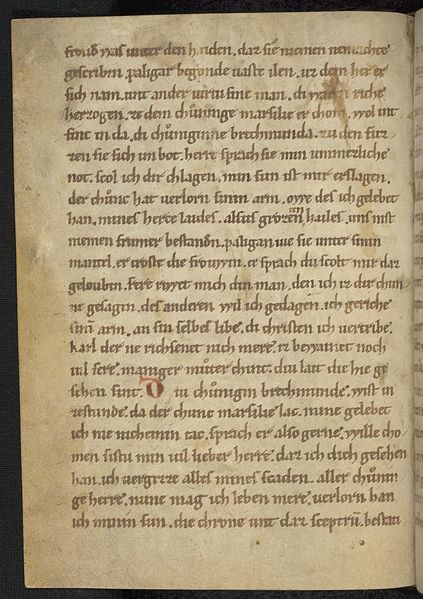 froud was unter den haiden. daz sie niemen nemachte
gescriben. paligan begonde uaste ilen. uz dem her er
sich nam. unt ander uirtusinc man. di waren riche
herzogen. ze dem chůninge marsilie er chom. wol int
fint in da. di chůniginne brechmunda. zu den fůz
zen sie sich im bot. herre sprach sie min ummerliche
not. scol ich dir chlagen. min sun ist mir erslagen.
der chunc hat uerlorn sinin arm. owe des ich gelebet
han. mines herce laides. alsus grozem hailes. uns nist
niemen frumer bestanden. paligan wie sie unter sinin
mantel. er troste die frouwin. er sprach du scolt mir daz
gelouben. sere riwet mich din man. den ich iz dir chun
ne gesagin. des anderen wil ich gedagen. ich geriche
sinin arm. an sin selbes libe. di christen ich uertribe.
karl der ne richsenet nich mere. er beweinet noch
uil sere. maniger můter chint. diu lait die hie ge
schen sint. D iu chůnigin brechmunde. wist in
zestunde. da der chunc marsilie lac. nune gelebet
ich nie nicheinin tac. sprach er also gerne. wille cho
men sistu min uil lieber herre. daz ich dich gesehen
han. ich uergizze alles mines scaden. aller chůnin
ge herre. nune mag ich leben mere. uerlorn han
ich minin sun. die chrone unt daz sceptrū. bestan